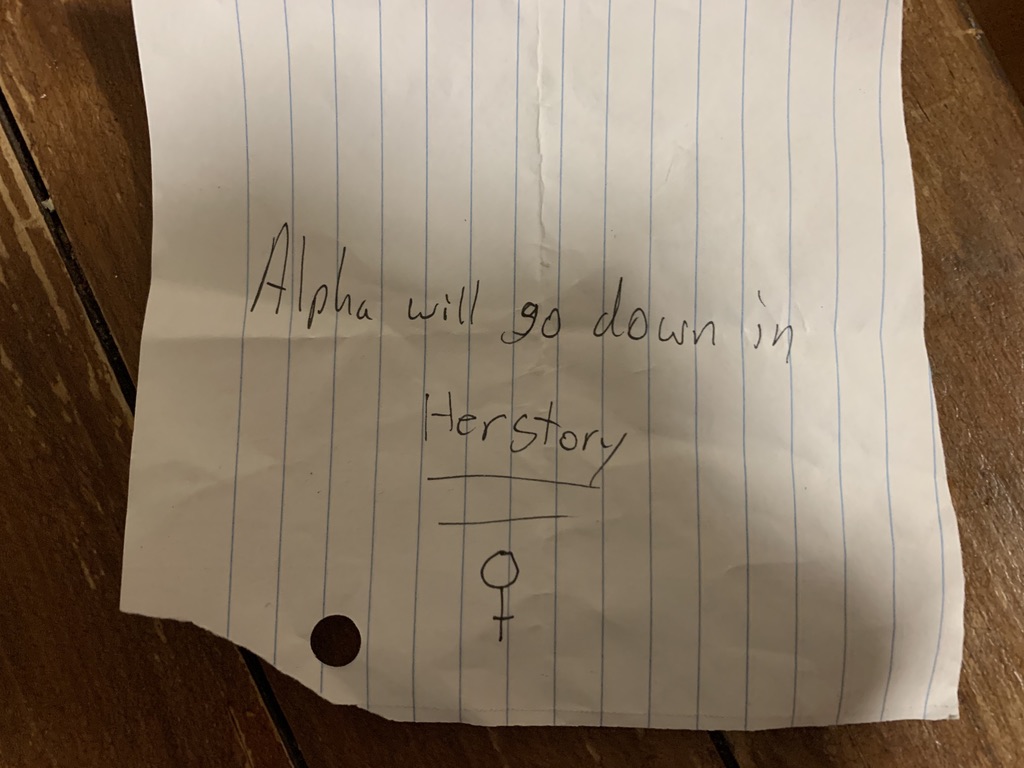 Alpha will go down in
Herstory
♀